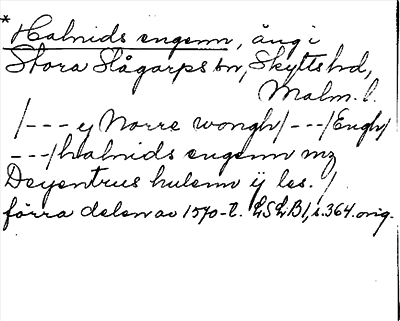 * Halnids engenn, äng i
Stora Slågarps sn, Skytts hd,
Malm. l.
/--- y Norre wongh/---/Engh/
---/halnids engenn mz
Deyentrus hulenn ij les. /
förra delen av 1570-t. LSLB1, s. 364. orig.